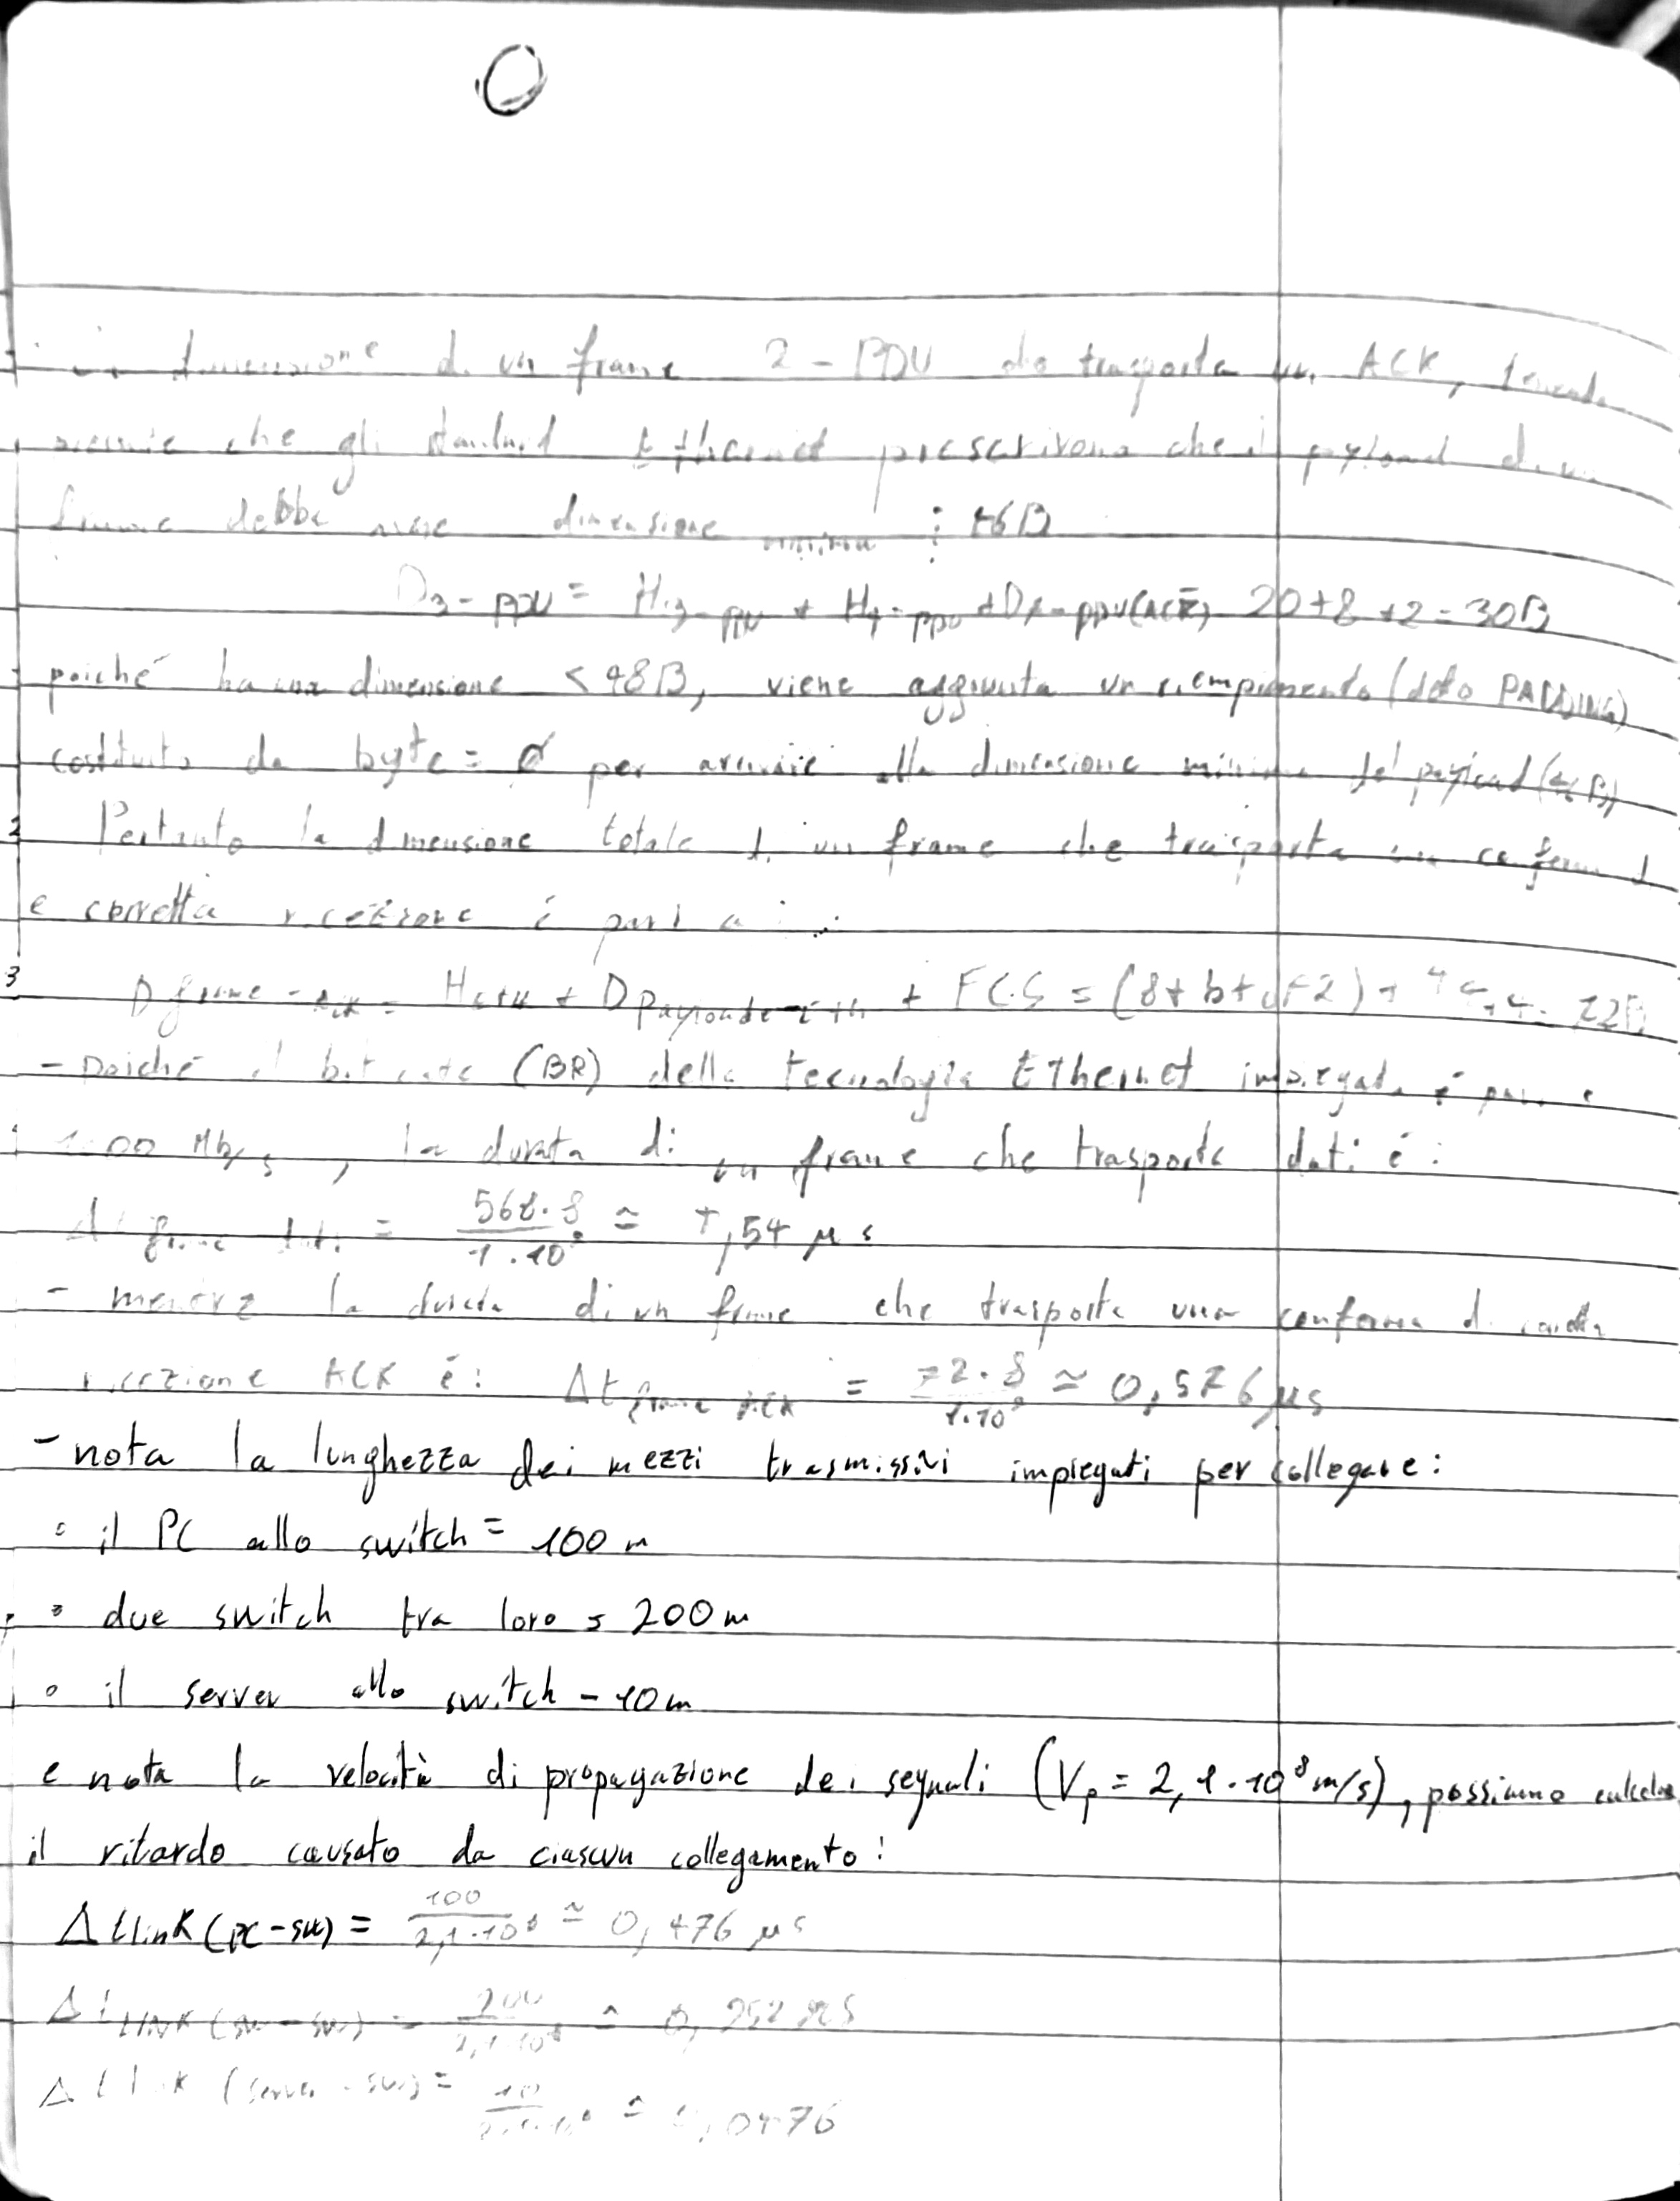 dimensione di un frame 2-PDU che trasporta un ACK, tenendo
che gli standard Ethernet prescrivono che il payload di un
debba dimensione minima : 46B
D3-PDU = H3-PDU + H4-PDU + D7-PDU(ACK) 20+8+2=30B
poiché ha una dimensione <48B, viene aggiunta un riempimento (detto PADDING)
costituito da byte = Ø per arrivare alla dimensione minima del payload (46B)
Pertanto la dimensione totale di un frame che trasporta
e corretta ricezione è pari a :
D frame-ACK = HETH + D payload-ETH + FCS = (8+6+6+2) + 46+4= 72B
- poiché il bit rate (BR) della tecnologia Ethernet impiegata è pari a
1000 Mb/s, la durata di un frame che trasporta dati è:
Δt frame dati = 568·8 / 1·10⁹ ≃ 4,54 μs
- mentre la durata di un frame che trasporta una conferma di corretta
ricezione ACK è: Δt frame ACK = 72·8 / 1·10⁹ ≃ 0,576 μs
- nota la lunghezza dei mezzi trasmissivi impiegati per collegare:
° il PC allo switch = 100 m
° due switch tra loro = 200 m
° il server allo switch - 10 m
e nota la velocità di propagazione dei segnali (Vp = 2,1·10⁸ m/s), possiamo calcolare
il ritardo causato da ciascun collegamento:
Δt link (pc-sw) = 100 / 2,1·10⁸ ≃ 0,476 μs
Δt LINK (sw-sw) = 200 / 2,1·10⁸ ≃ 0,952 μs
Δt link (server-sw) = 10 / 2,1·10⁸ ≃ 0,0476